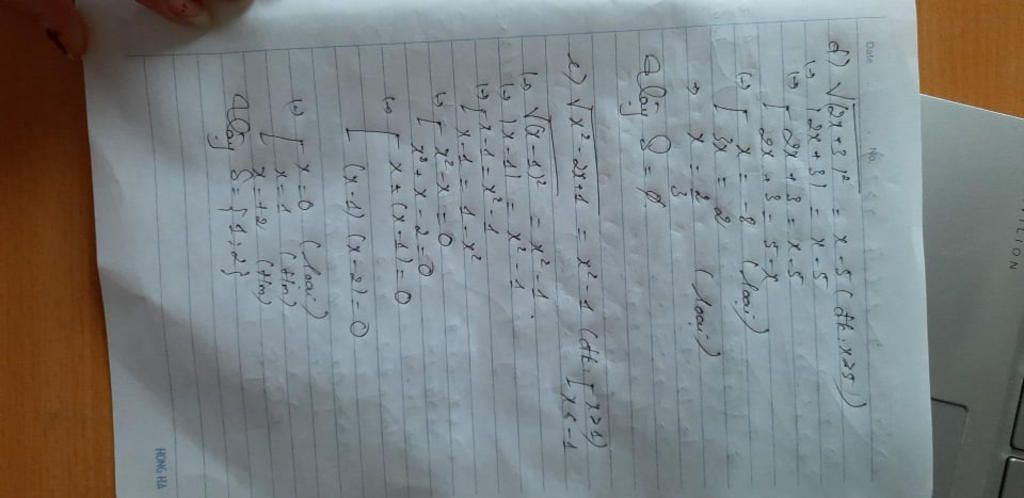 Date No.
d) √(2x+3)² = x-5 (đk: x≥5)
(=) |2x+3| = x-5
(=) [ 2x+3 = x-5
2x+3 = 5-x
(=) [ x = -8 (loại)
3x = 2
=> x = 2/3 (loại)
Vậy S = ∅
e) √x²-2x+1 = x²-1 (đk: [ x≥1
x≤-1)
(=) √(x-1)² = x²-1
(=) |x-1| = x²-1
(=) [ x-1 = x²-1
x-1 = 1-x²
(=) [ x²-x = 0
x²+x-2=0
(=) [ x*(x-1)=0
(x-1)(x-2)=0
(=) [ x=0 (loại)
x=1 (t/m)
x=+2 (t/m)
Vậy S = {1;2}
HONG HA
ILION